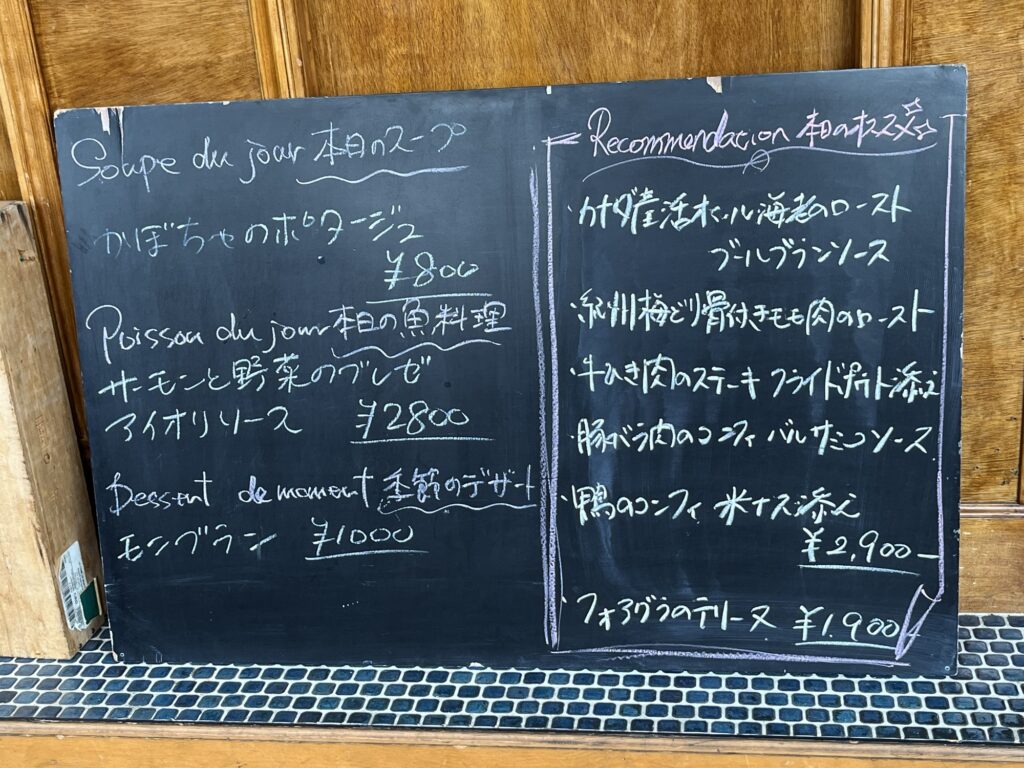 Soupe du jour 本日のスープ
かぼちゃのポタージュ
¥800
Poisson du jour 本日の魚料理
サーモンと野菜のブレゼ
アイオリソース ¥2800
Dessert de moment 季節のデザート
モンブラン ¥1000
Recommendation 本日のオススメ
・カナダ産活オマール海老のロースト
ブールブランソース
・紀州梅どり骨付きモモ肉のロースト
・牛ひき肉のステーキ フライドポテト添え
・豚バラ肉のコンフィ バルサミコソース
・鴨のコンフィ 米ナス添え
¥2,900
・フォアグラのテリーヌ ¥1,900